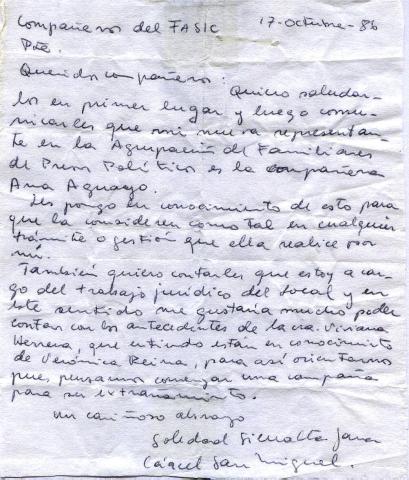 Compañeros del FASIC 17-Octubre-86
Pte.
Queridos compañeros:
Quiero saludar-
los en primer lugar y luego comu-
nicarles que mi nueva representan-
te en la Agrupación de Familiares
de Presos Políticos es la compañera
Ana Aguayo.
Les pongo en conocimiento de esto para
que la consideren como tal en cualquier
trámite o gestión que ella realice por
mí.
También quiero contarles que estoy a car-
go del trabajo jurídico del local y en
este sentido me gustaría mucho poder
contar con los antecedentes de la cra. Viviana
Herrera, que entiendo están en conocimiento
de Verónica Reina, para así orientarnos
pues, pensamos comenzar una campaña
para su extrañamiento.
Un cariñoso abrazo
Soledad Jara
Cárcel San Miguel.